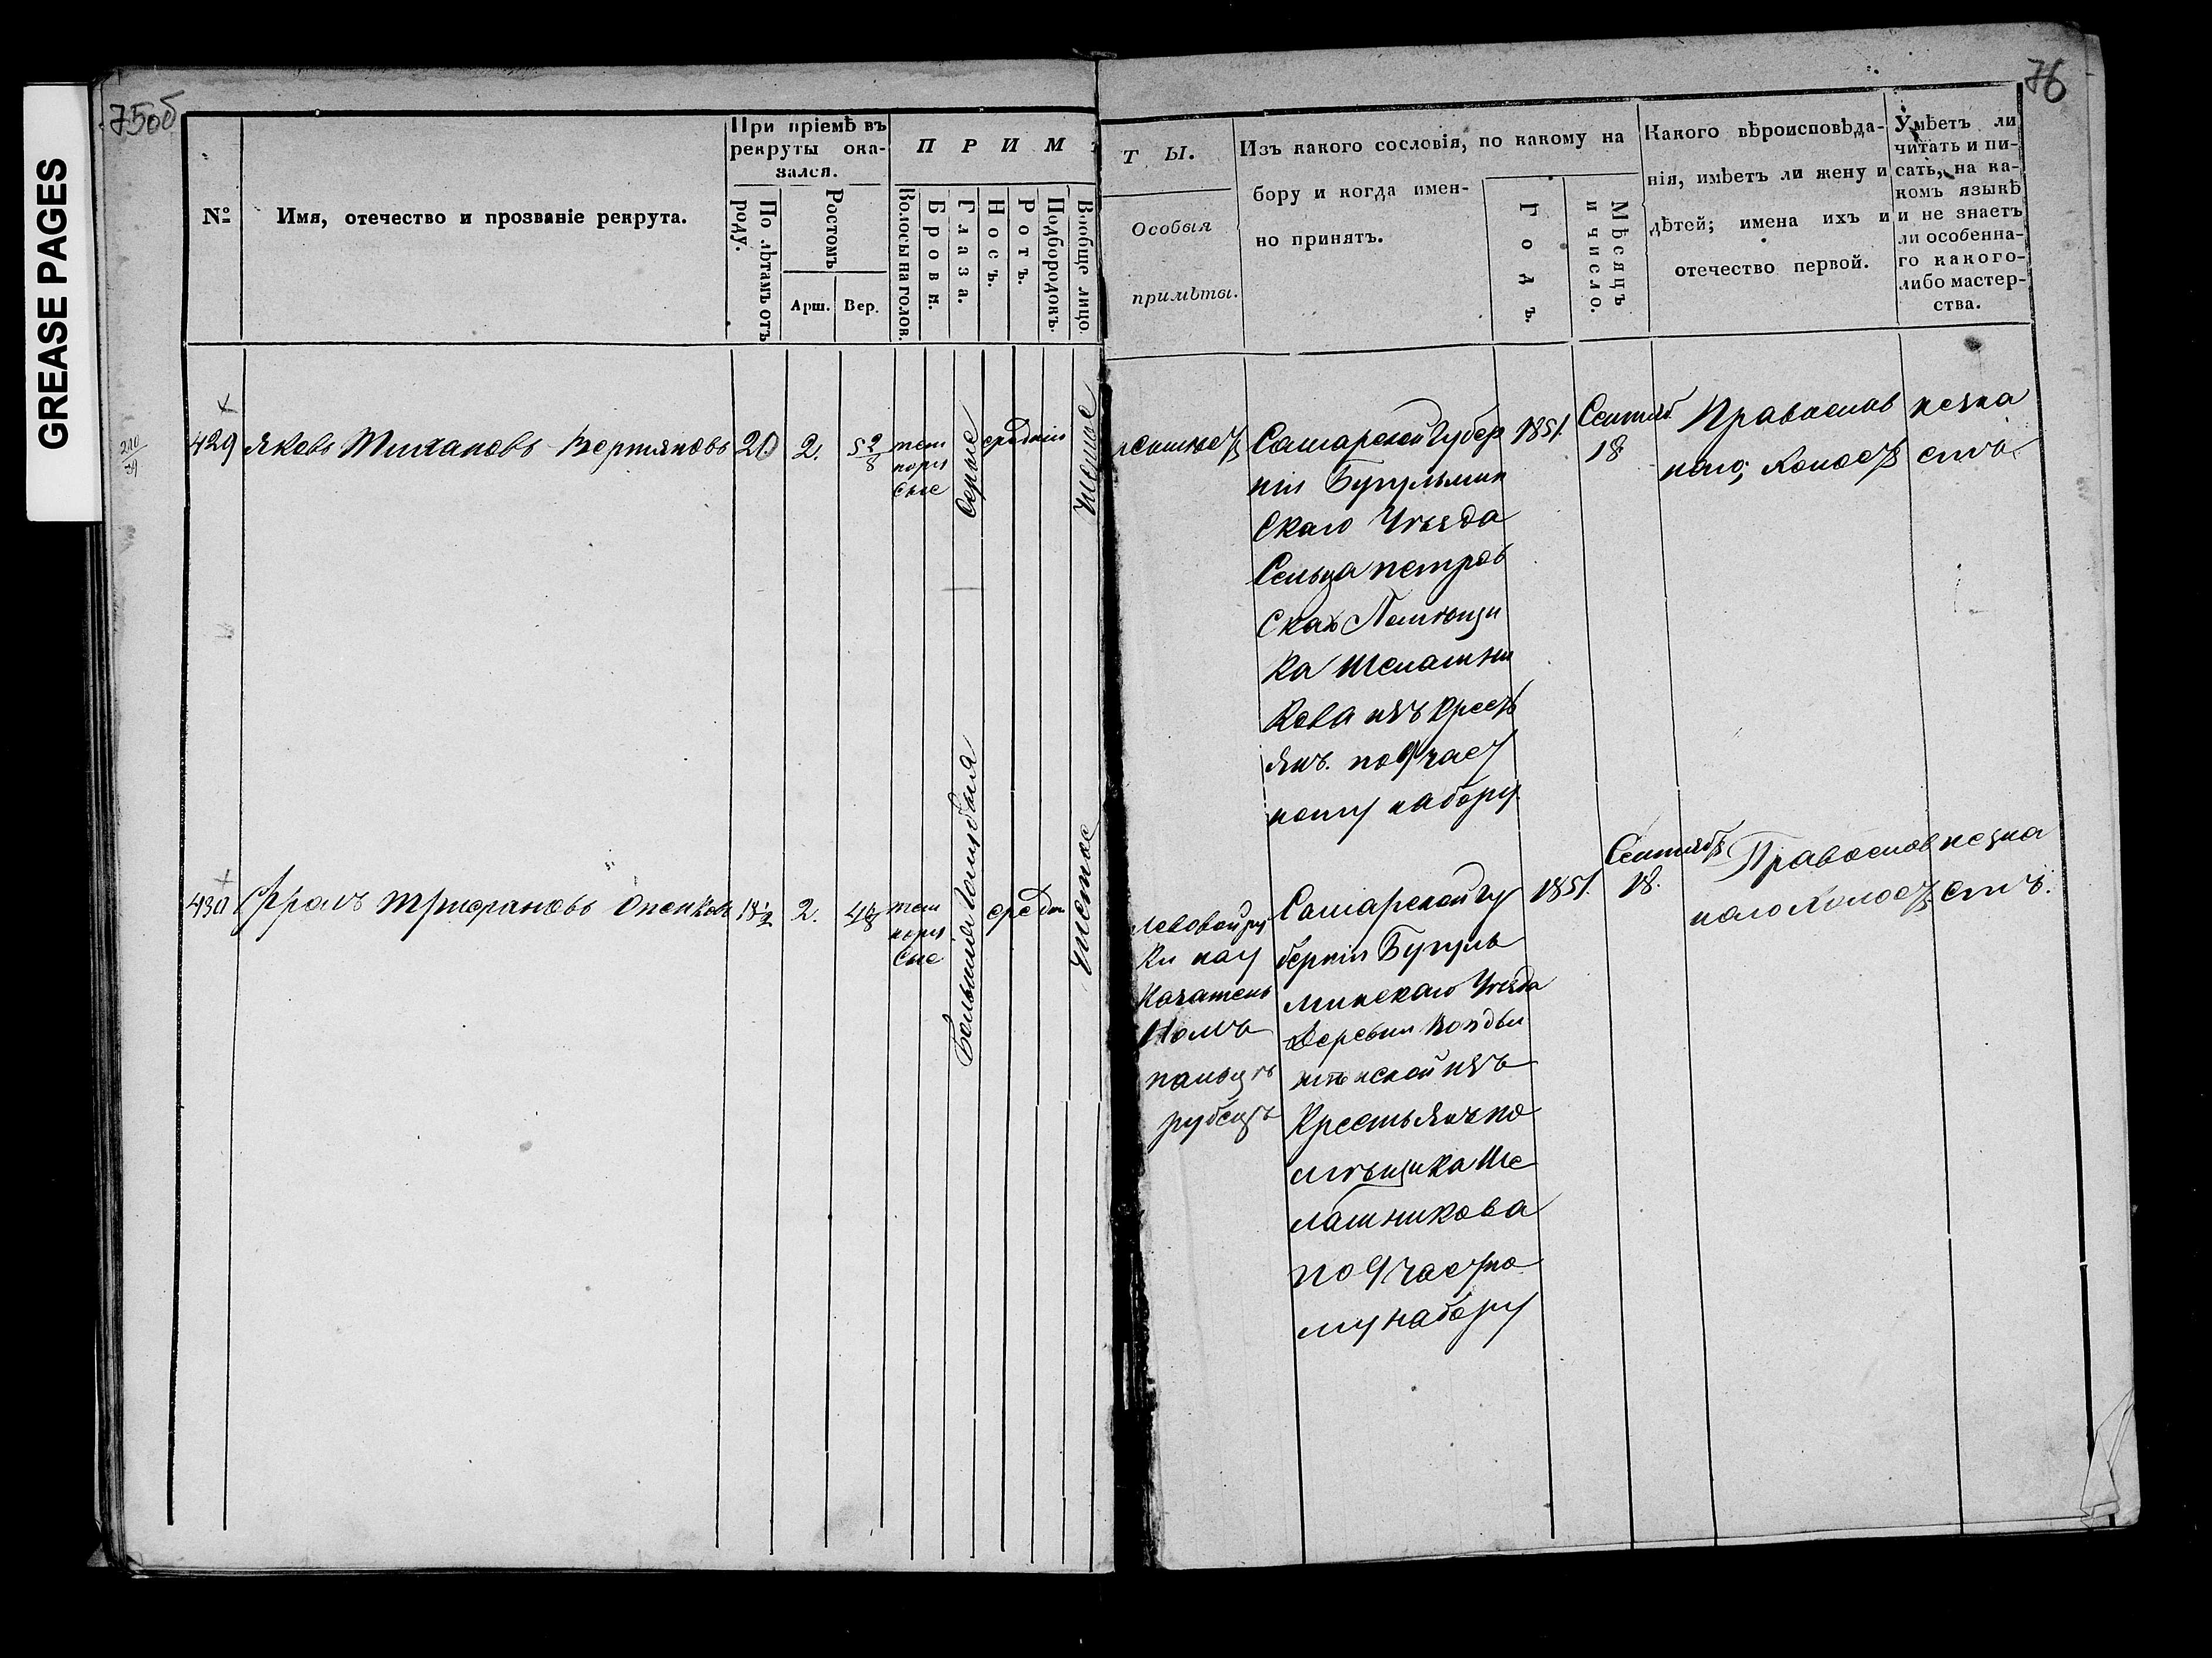 GREASE PAGES
75об
76
№
Имя, отечество и прозваніе рекрута.
При пріемѣ въ
рекруты ока-
зался.
По лѣтамъ отъ
роду.
Ростомъ
Арш.
Вер.
П Р И М
Волосы на голов.
Брови.
Глаза.
Носъ.
Ротъ.
Подбородокъ.
Вообще лицо
Т Ы.
Особыя
примѣты.
Изъ какого сословія, по какому на
бору и когда имен-
но принятъ.
Годъ.
Мѣсяцъ
и число.
Какого вѣроисповѣда-
нія, имѣетъ ли жену и
дѣтей; имена ихъ и
отечество первой.
Умѣетъ ли
читать и пи-
сать, на ка-
комъ языкѣ
и не знаетъ
ли особенна-
го какого-
либо мастер-
ства.
429
Яковъ
20
2.
5 2/8
темно
русые
серые
средній
чистое
Самарской Губер
ніи Бугульмин
скаго Уѣзда
Сельца петров
скаго Помѣщи
ка Шелашни
кова изъ крест
янъ. по 9 част
ному набору
1851.
Сентяб
18
Православ
наго, холост
незна
етъ.
430
Фролъ Трифановъ
18 1/2
2.
темно
русые
Большія Голубыя
средн
чистое
левой ру
ки на у
казатель
номъ
пальцѣ
рубецъ
Самарской гу
берніи Бугуль
минскаго Уѣзда
Деревни
изъ
Крестьянъ по
мѣщика Ше
лашникова
по 9 частно
му набору
1851.
Сентябр
18.
Православ
наго холост
незна
етъ.